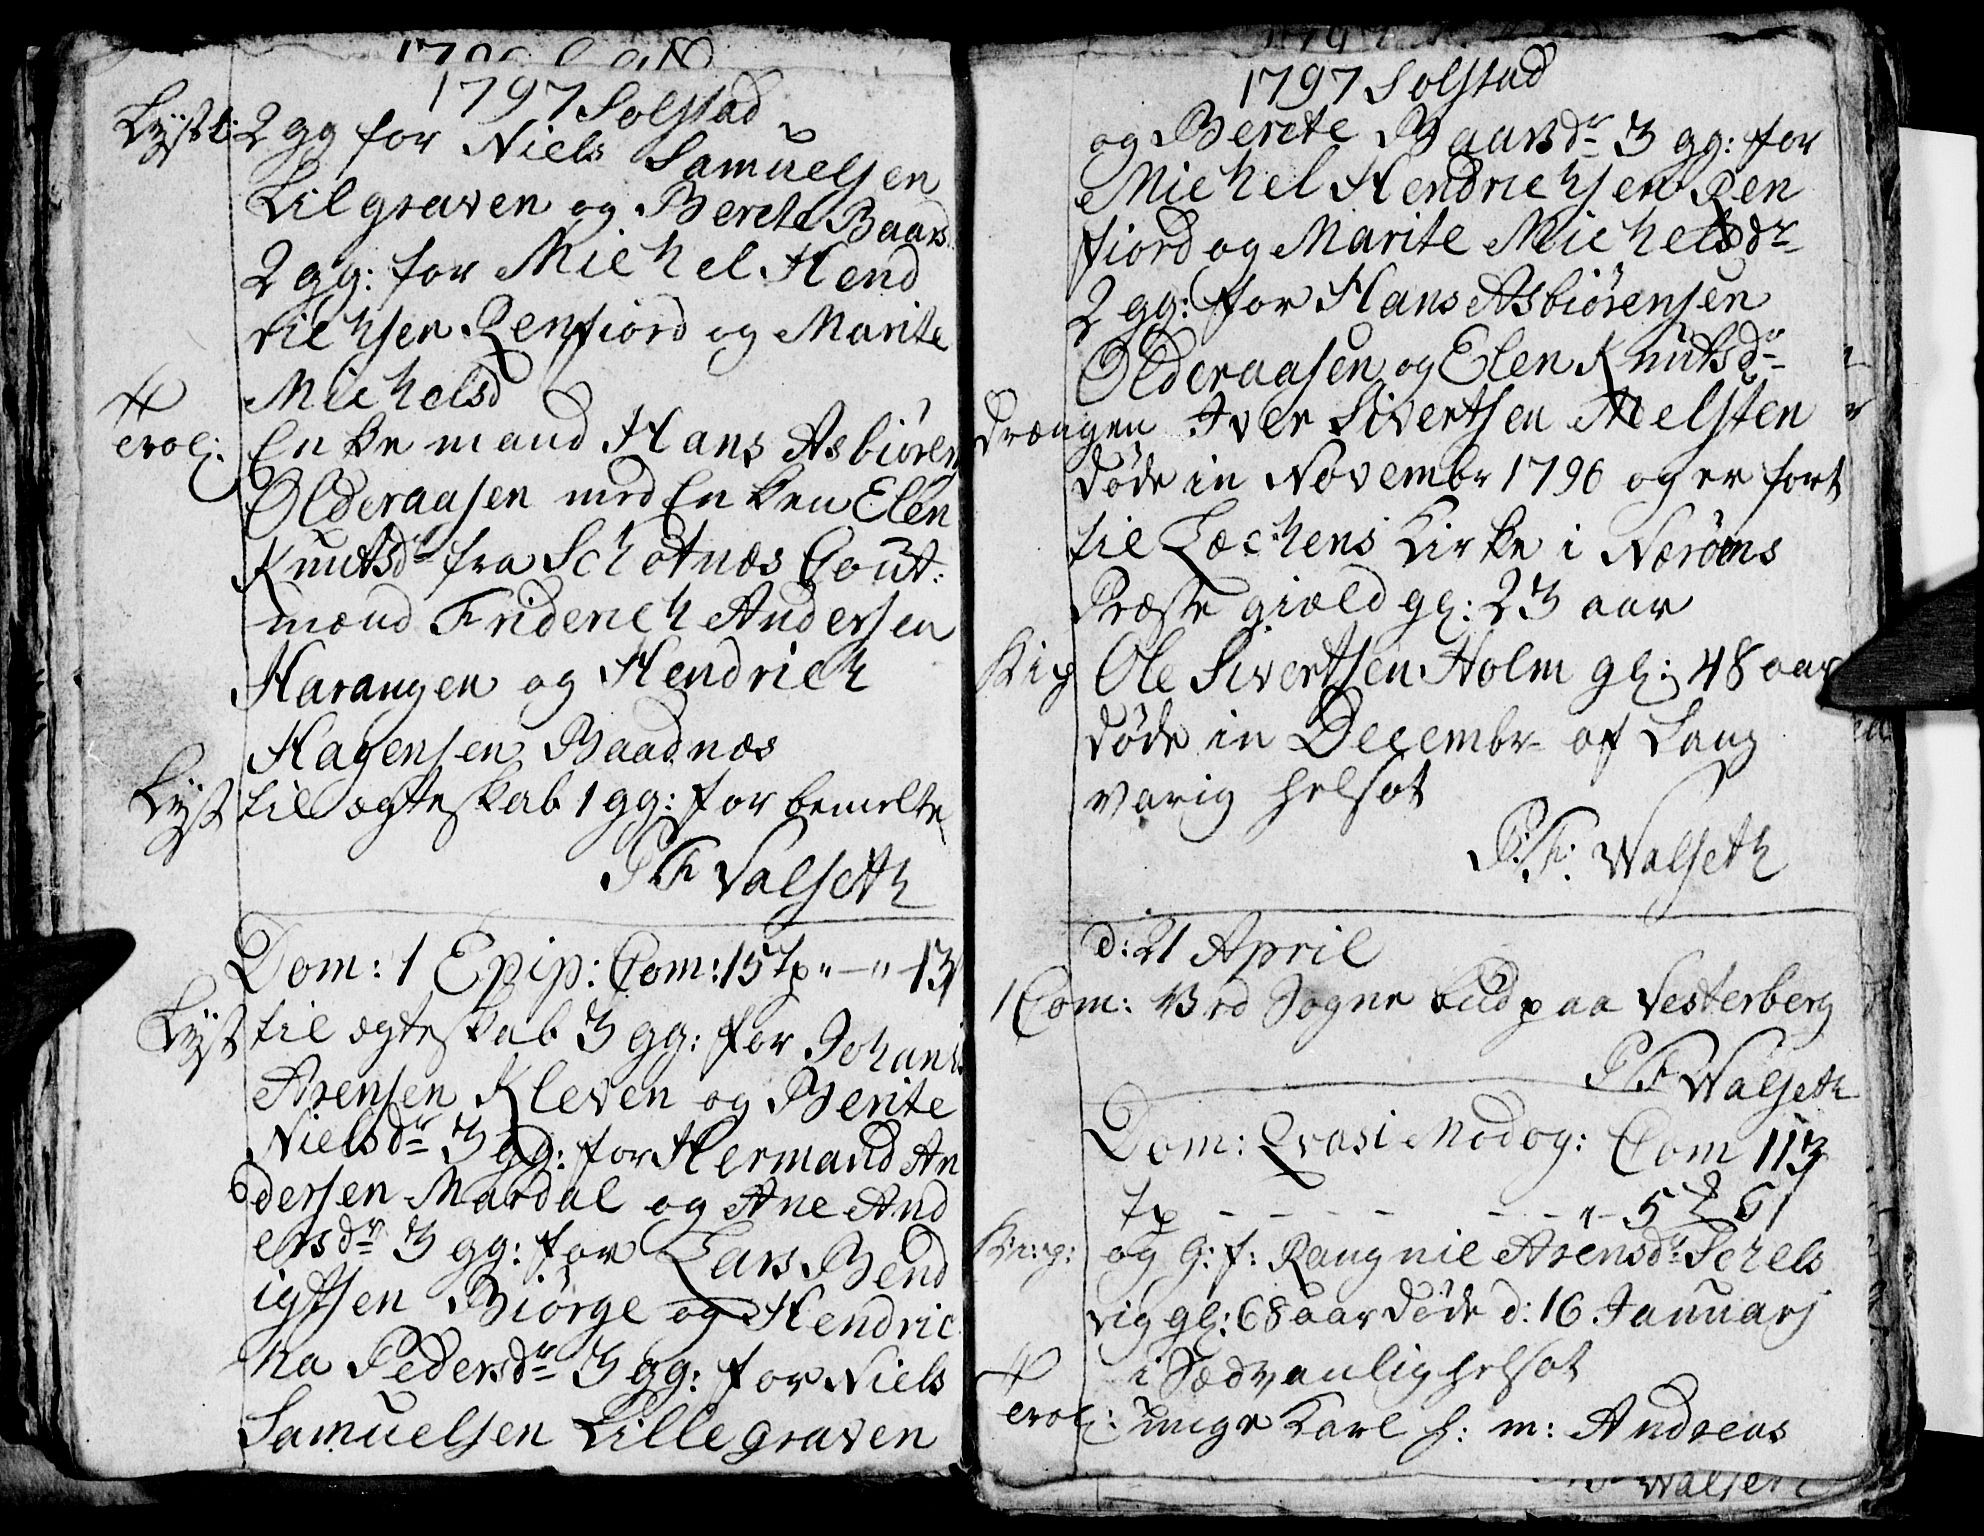 1797 Solstad
Lyst t: 2 gg for Niels Samuelsen
Lilgraven og Berete Baars
2 gg: for Michel Hend
richsen Renfiord og Marite
Michelsd
Trol: Enkemand Hans Asbiøren
Olderaasen med Enken Elen
Knutsdr fra Schotnæs Cout:
mænd Friderich Andersen
Harangen og Hendrich
Hagensen Baadnæs
Lyst til ægteskab 1 gg: for bemelte
P F Valseth
Dom: 1 Epip: Com: 15 Tp " — " 13
Lyst til ægteskab 3 gg: for Johans
Arensen Kleven og Berite
Nielsdr 3 gg: for Hermand An
dersen Mardal og Ane And
ersdr 3 gg: for Lars Bend
igtsen Biörge og Hendric
ka Pedersdr 3 gg: for Niels
Samuelsen Lillegraven
1797 Solstad
og Berete Baarsdr 3 gg: for
Michel Hendrichsen Ren
fiord og Marite Michelsdr
2 gg: for Hans Asbiörensen
Olderaasen og Elen Knutsdr
Drængen Iver Sivertsen Melsten
døde in Novembr 1796 og er fört
til Læchens Kirke i Neröens
Præste giæld gl: 23 aar
Ole Sivertsen Holm gl: 48 aar
døde in Decembr af Lang
varig helsot
P: F: Walseth
d: 21 April
1 Com: ved Sogne bud paa Vesterberg
P F Walseth
Dom: Qvasi Modog: Com 113
Tp - - - - - - - " - 5
og G: f: Rangnil Arensdr Serels
vig gl: 68 aar døde d: 16 Januarj
i Sædvanlig helsot
Trol: unge Karl S: m: Andreas